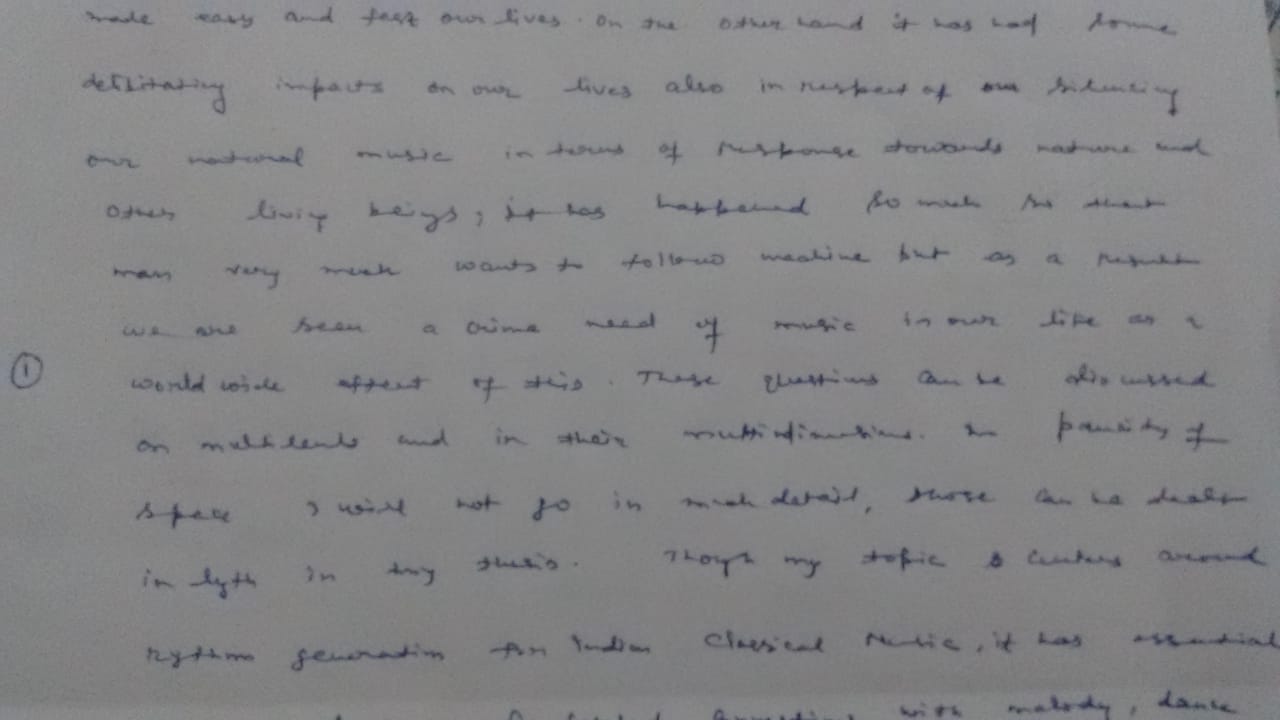 made easy and fast our lives. On the other hand it has had some
debilitating impacts on our lives also in respect of our silencing
our natural music in terms of response towards nature and
other living beings, it has happened so much so that
man very much wants to follow machine but as a result
we are seen a crime need of music in our life as a
① world wide effect of this. These questions can be discussed
on and in their multidimentions. In paucity of
space I will not go in much detail, those can be dealt
in lgth in my thesis. Though my topic centers around
rythm generation for Indian Classical Music, it has essential
with melody, dance